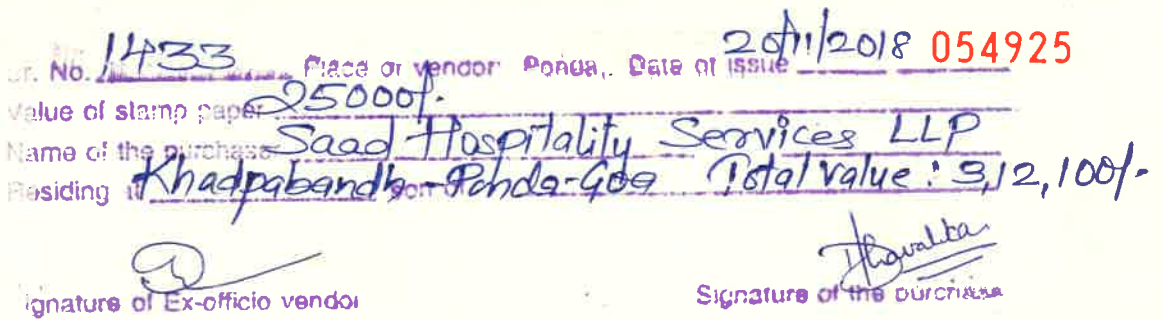 Sr. No. 1433 Place of vendor: Ponda, Date of issue 20/11/2018 054925
Value of stamp paper 25000/-
Name of the purchaser Saad Hospitality Services LLP
Residing at Khadpabandh-Ponda-Goa Total Value: 3,12,100/-
Signature of Ex-officio vendor Signature of the purchaser